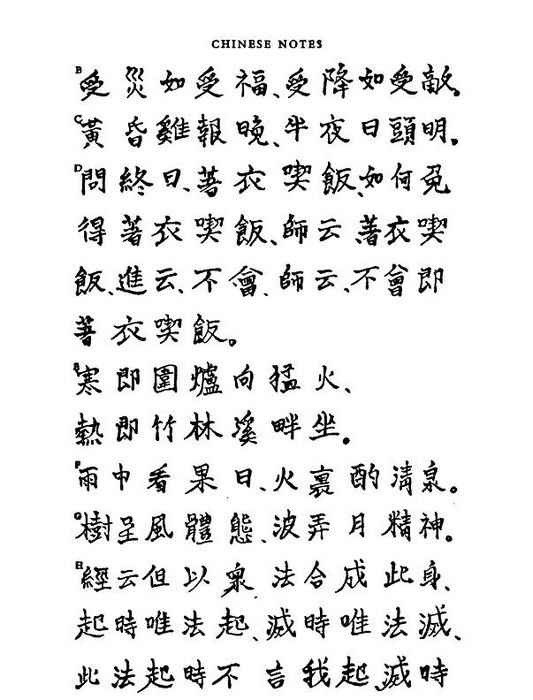 CHINESE NOTES
B受災如受福、受降如受敵。
C黃昏雞報曉、半夜日頭明。
D問終日、著衣喫飯、如何免
得著衣喫飯、師云、著衣喫
飯、進云、不會、師云、不會即
著衣喫飯。
E寒即圍爐向猛火、
熱即竹林溪畔坐。
F雨中看果日、火裏酌清泉。
G樹呈風體態、波弄月精神。
H經云但以衆法合成此身、
起時唯法起、滅時唯法滅、
此法起時不言我起、滅時